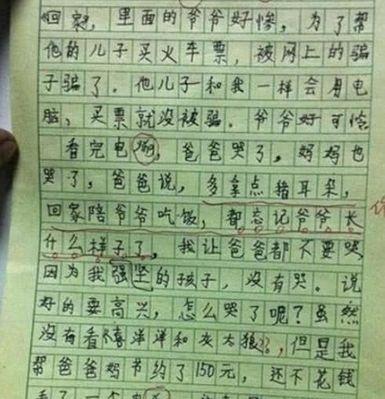 回家，里面的爷爷好惨，为了帮
他的儿子买火车票，被网上的骗
子骗了。他儿子和我一样会用电
脑，买票就没被骗。爷爷好可怜
看完电，爸爸哭了，妈妈也
哭了，爸爸说，多拿点猪耳朵，
回家陪爷爷吃饭，都忘记爷爷长
什么样子了，我让爸爸都不要哭，
因为我强坚的孩子，没有哭。说
好的要高兴，怎么哭了呢？虽然
没有看喜洋洋和灰太狼，但是我
帮爸爸妈节约了150元，还不花钱
看了一个